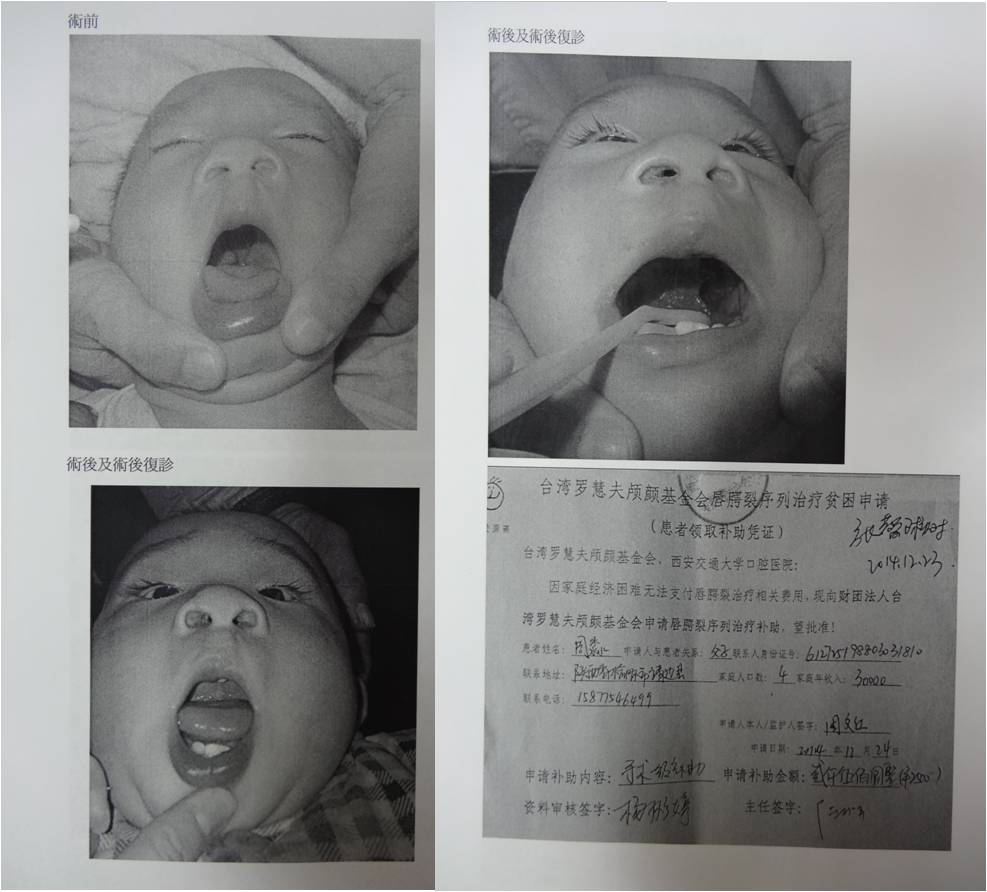 術前
術後及術後復診
術後及術後復診
台湾罗慧夫颅颜基金会唇腭裂序列治疗贫困申请
（患者领取补助凭证）
2014.12.23
台湾罗慧夫颅颜基金会、西安交通大学口腔医院：
因家庭经济困难无法支付唇腭裂治疗相关费用，现向财团法人台
湾罗慧夫颅颜基金会申请唇腭裂序列治疗补助，望批准！
患者姓名： 申请人与患者关系：父子 联系人身份证号：
联系地址： 家庭人口数：4 家庭年收入：30000
联系电话：
申请人本人/监护人签字：
申请日期：2014 年 12 月 24 日
申请补助内容：手术 补助 申请补助金额：
资料审核签字： 主任签字：